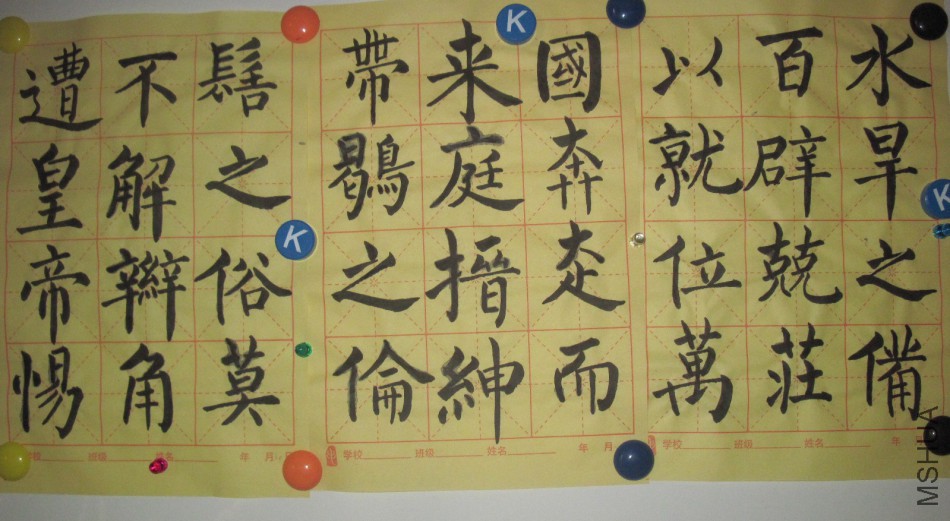 水旱之備
百辟兢莊
以就位萬
國奔走而
来庭搢紳
帶鶡之倫
髻之俗莫
不解辮角
遭皇帝惕
学校 班级 姓名 年
学校 班级 姓名 年 月
班级 姓名 年 月
K
K
K
MSHUA